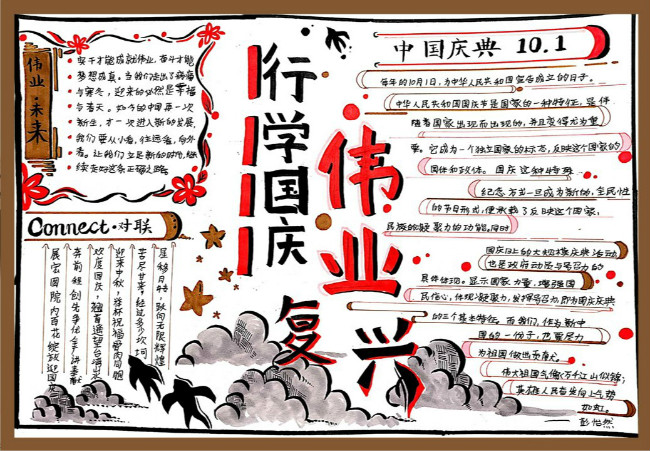 伟业·未来
实干才能成就伟业,奋斗才能
梦想成真。当我们走出了病痛
与寒冬,迎来的必然是幸福
与春天。如今的中国再一次
新生,才一次进入新的发展
我们要从小看,往远看,向外
看。让我们立足新的时间,继
续走好这条正确之路。
Connect·对联
星移月转,耿向无限辉煌
苦尽甘来,经过多少坎坷
迎来中秋,举杯祝福骨肉同胞
欢度国庆,翘首遥望台湾山水
奔前程创先争优全争奉献
展宏图院内百花绽放迎国庆
行学国庆
伟业复兴
中国庆典 10.1
每年的10月1日,为中华人民共和国宣告成立的日子。
中华人民共和国国庆节是国家的一种特征,是伴
随着国家出现而出现的,并且变得尤为重
要。它成为一个独立国家的标志,反映这个国家的
国体和政体。国庆这种特殊
纪念方式一旦成为新的,全民性
的节日形式,便承载了反映这个国家,
民族的凝聚力的功能,同时
国庆日上的大规模庆典活动
也是政府动员与号召力的
具体体现。显示国家力量,增强国
民信心,体现凝聚力,发挥号召力,即为国庆庆典
的三个基本特征。而我们,作为新中
国的一份子,也要尽力
为祖国做出贡献
伟大祖国气像万千江山似锦;
英雄人民奋发向上气势
如虹。
——彭怡然